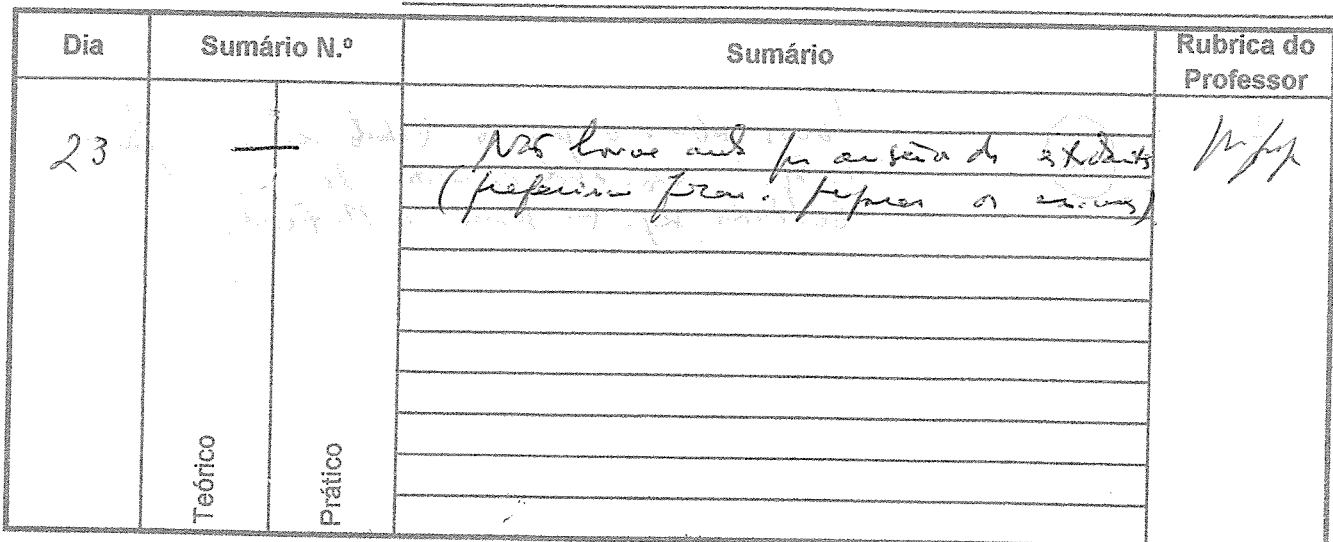 Dia Sumário N.º Sumário Rubrica do Professor
23 — Não houve aula por ausência de estudantes
(preferiram preparar os exames)
Teórico Prático